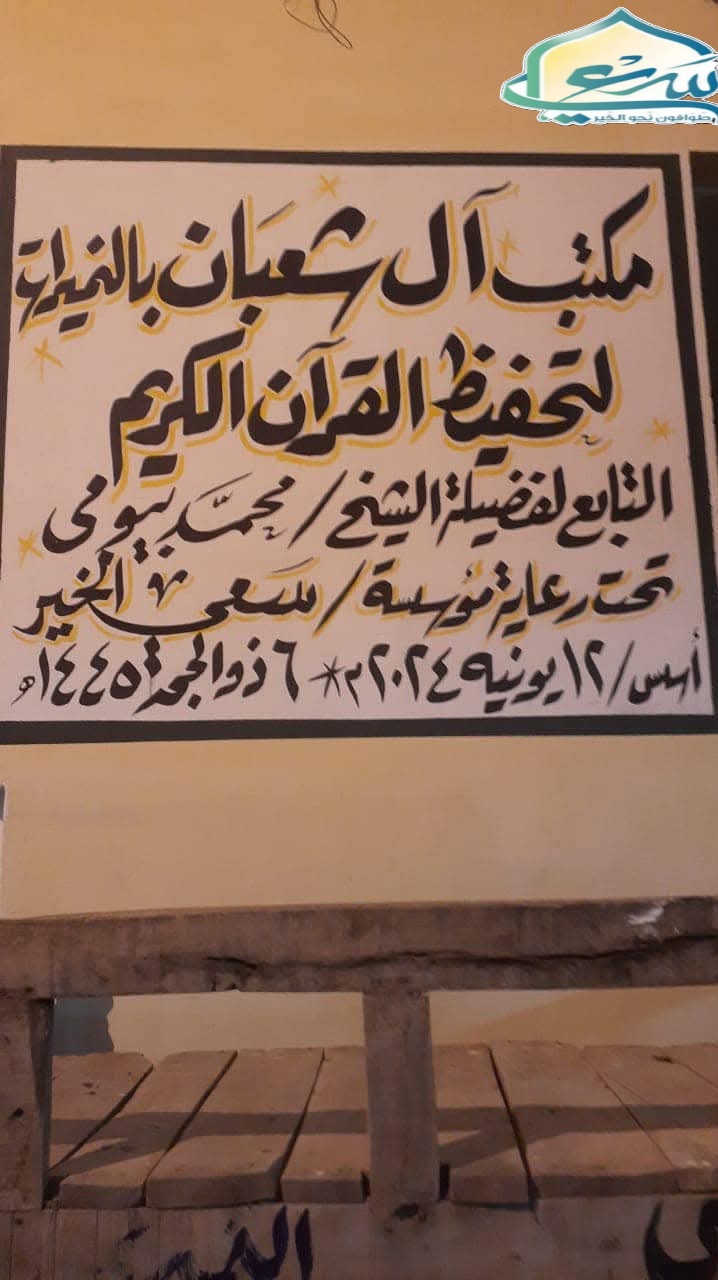 سعي
طوافون نحو الخير
مكتب آل شعبان بالنميرات
لتحفيظ القرآن الكريم
التابع لفضيلة الشيخ / محمد بيومى
تحت رعاية مؤسسة / سعى الخير
أسس / ١٢ يونيه ٢٠٢٤ م * ٦ ذو الحجة ١٤٤٥ هـ